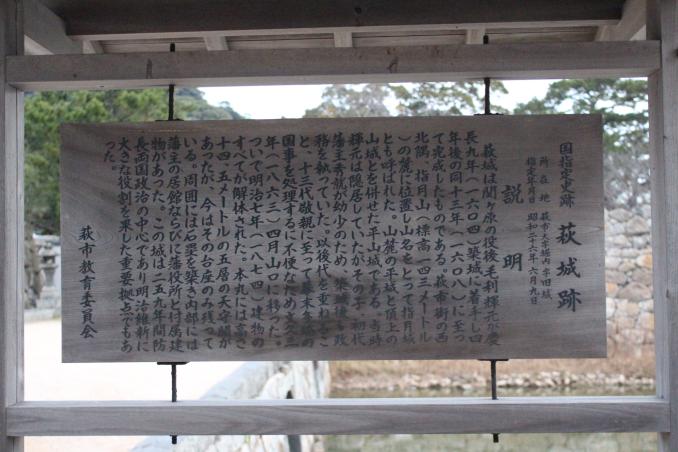 国指定史跡 萩城跡
所在地 萩市大字堀内字旧城
指定年月日 昭和二十六年六月九日
説明
萩城は関ヶ原の役後、毛利輝元が慶
長九年(一六〇四)築城に着手し四
年後の同十三年(一六〇八)に至っ
て完成したものである。萩市街の西
北隅、指月山(標高一四三メートル
)の麓に位置し山名をとって指月城
とも呼ばれた。山麓の平城と頂上の
山城とを併せた平山城である。当時
輝元は隠居していたがその子、初代
藩主秀就が幼少のため、築城後も政
務を執っていた。以後代を重ねるこ
と、十三代敬親に至って幕末多端の
国事を処理するに不便なため文久三
年(一八六三)四月山口に移った。
ついで明治七年(一八七四)建物の
すべてが解体された。本丸には高さ
十四・五メートルの五層の天守閣が
あったが、今はその台座のみ残って
いる。周囲には石塁を築き内部には
藩主の居館ならびに藩役所と付属建
物があった。この城は二五九年間防
長両国政治の中心であり明治維新に
大きな役割を果した重要拠点でもあ
った。
萩市教育委員会